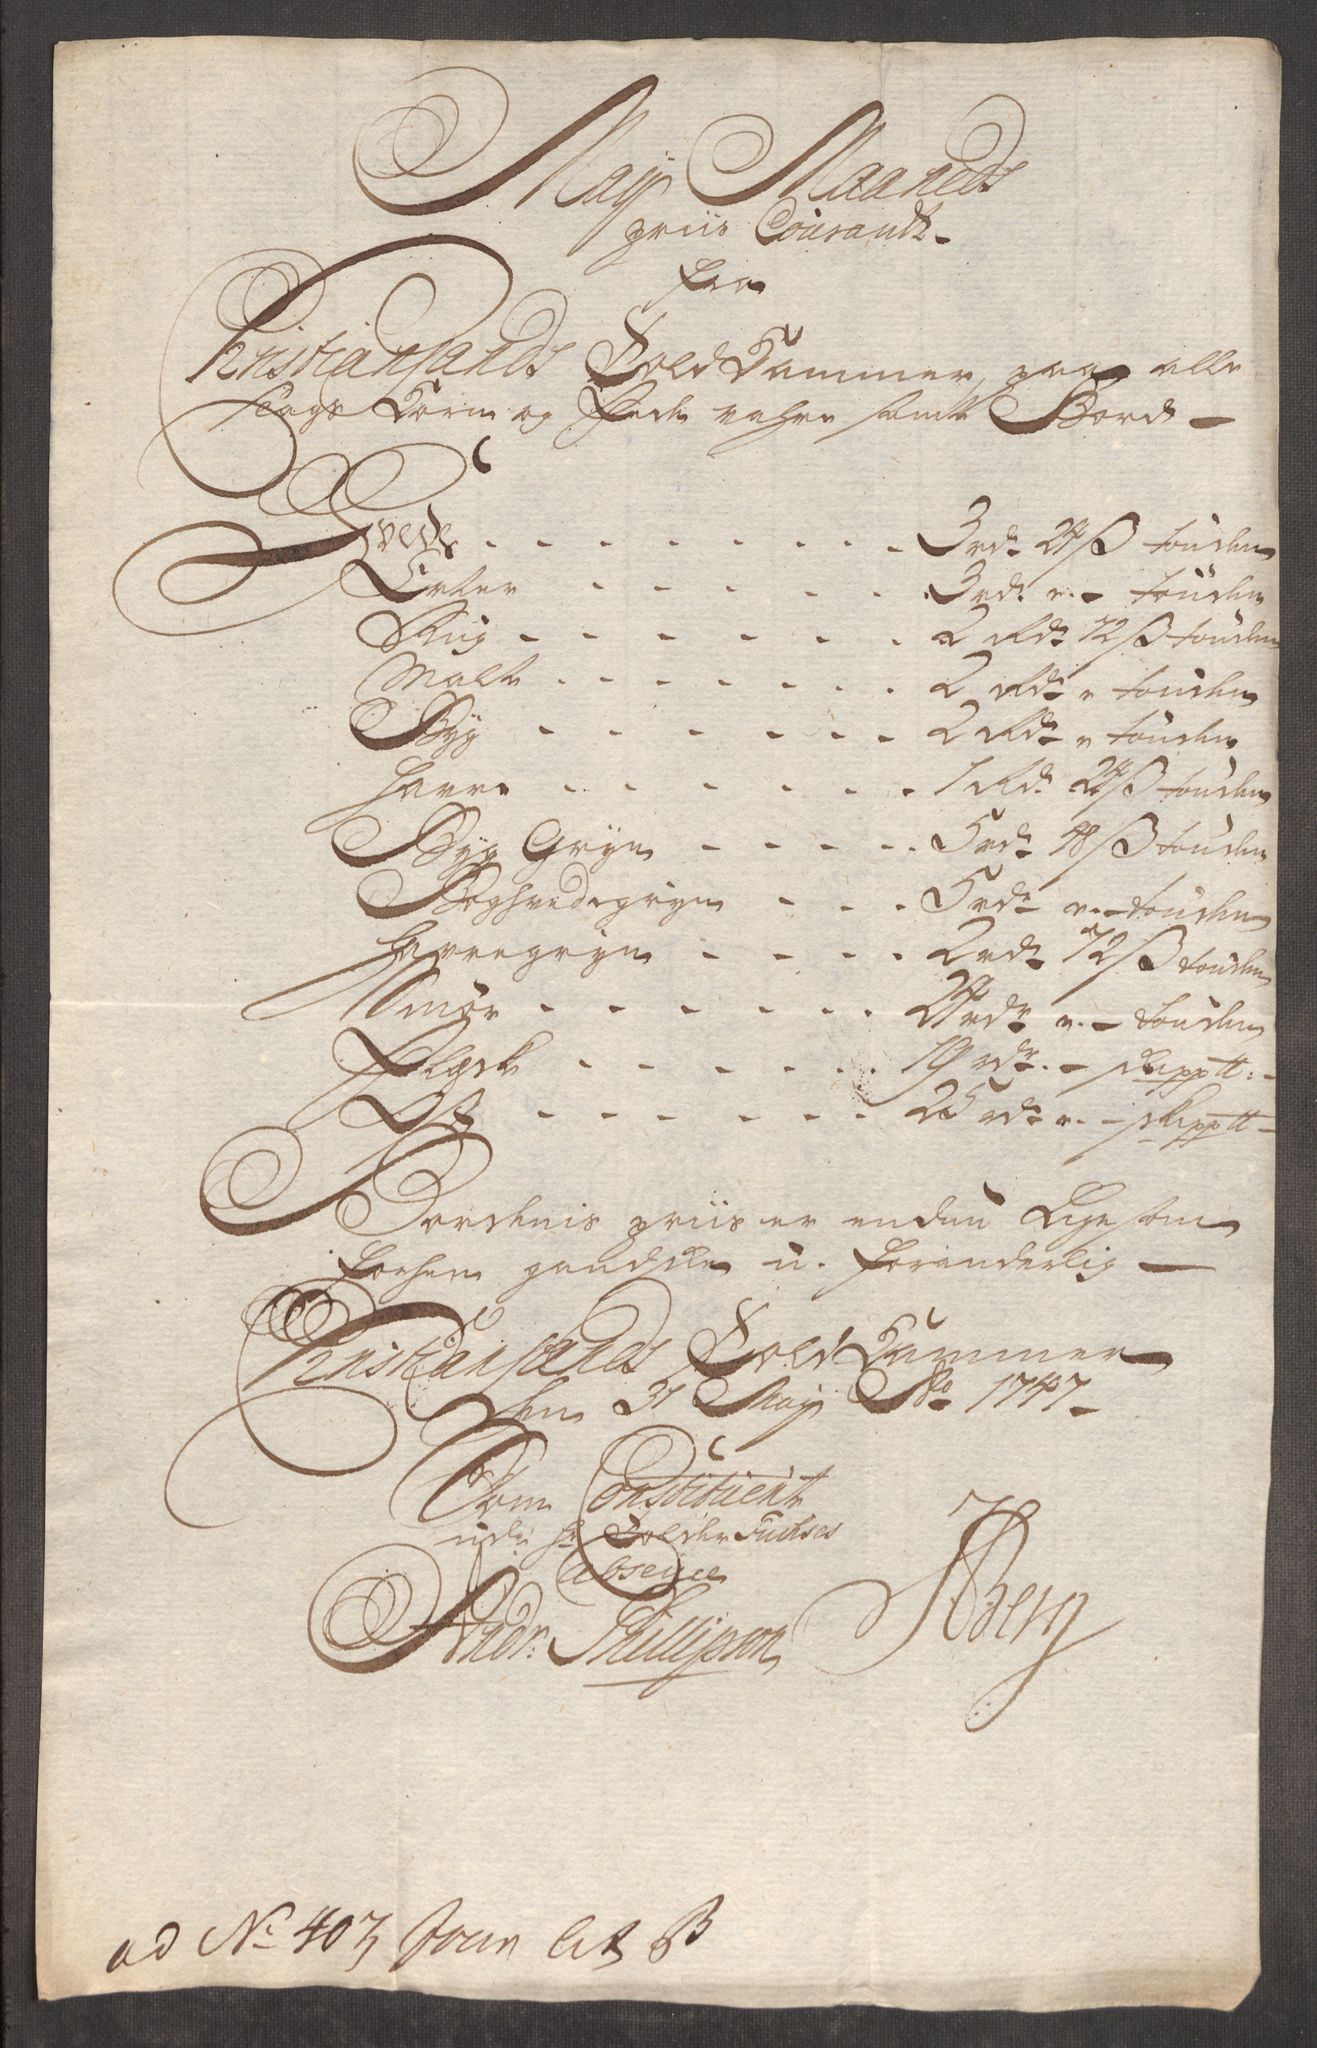 Maij Maaneds
priis Courandt
fra
Christiansands Told Kammer, paa alle
slags Korn og Fede vahre samt Bord
Hvede - - - - - - - - - 3 rdr 24 ß tønden
Erter - - - - - - 3 rdr " - tønden
Rug - - - - - - - 2 Rdr 72 ß tønden
Malt - - - - - - - 2 Rdr " tønden
Byg - - - - - - - 2 Rdr " tønden
Havre - - - - - - - 1 Rdr 24 ß tønden
Byg Gryn - - - - - 5 rdr 48 ß tønden
Boghvedegryn - - - 5 rdr " - tønden
Havregryn - - - - - 2 rdr 72 ß tønden
Smør - - - - - - - 24 rdr " - tønden
Flesk - - - - - - - 19 rdr - skippt
Ost - - - - - - - 25 rdr " - skippt
Bordenis priis er endnu Ligesom
forhen gandske u-foranderlig
Christiansands Told Kammer
den 31 Maij Ao 1747
Som Constitueret
udi Hr Tolder Fuchses
absence
Andr: Phillipson Berg
ad No 403 Jour Lit B